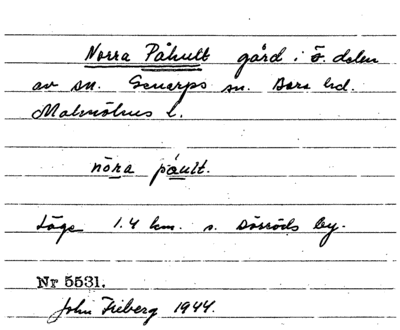 Norra Påhult gård i ö. delen
av sn. Genarps sn. Bara hd.
Malmöhus l.
nöra påult.
Läge 1.4 km. s. Dörröds by.
Nr 5531.
John Friberg 1944.